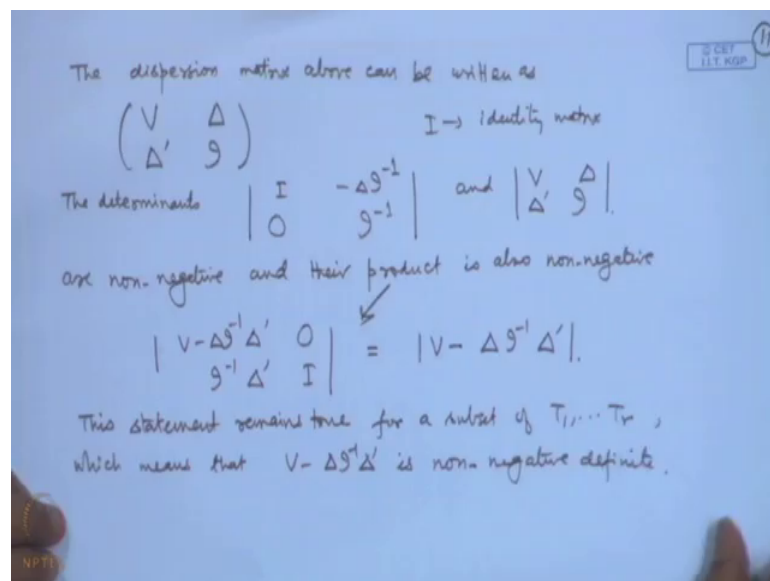 11
© CET
I.I.T. KGP
The dispersion matrix above can be written as
( V Δ
Δ' I ) I → identity matrix
The determinants | I -ΔI⁻¹
O I⁻¹ | and | V Δ
Δ' I |.
are non-negative and their product is also non-negative
| V-ΔI⁻¹Δ' O
I⁻¹Δ' I | = |V- ΔI⁻¹Δ'|.
This statement remains true for a subset of T₁,... Tᵣ,
which means that V- ΔI⁻¹Δ' is non-negative definite.
NPTEL